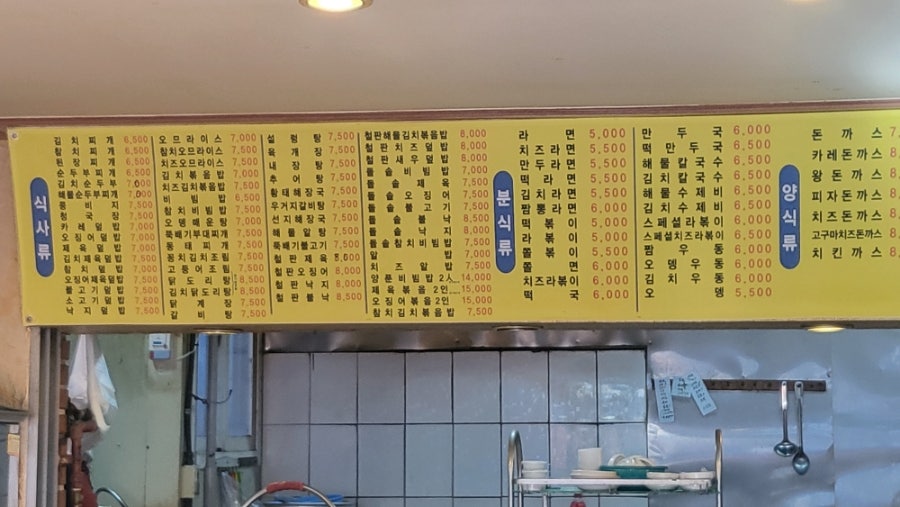 식사류
김치찌개 6,500
참치찌개 6,500
된장찌개 6,500
순두부찌개 6,500
김치순두부 7,000
해물순두부찌개 7,000
콩비지 7,500
청국장 7,500
카레덮밥 7,000
오징어덮밥 7,500
제육덮밥 7,500
김치덮밥 7,000
참치덮밥 7,500
오징어제육덮밥
불고기덮밥 7,500
소고기덮밥 7,500
낙지덮밥 7,500
오므라이스 7,000
참치오므라이스 7,500
치즈오므라이스 7,500
김치볶음밥 7,000
치즈김치볶음밥 7,500
비빔밥 6,500
참치비빔밥 7,500
오뎅매운탕 7,000
뚝배기부대찌개 7,500
동태찌개 7,500
꽁치김치조림 7,500
고등어조림 7,500
닭도리탕 8,500
김치닭도리탕 8,500
닭계장 7,500
갈비탕 7,500
설렁탕 7,500
육개장 7,500
내장탕 7,500
추어탕 7,500
황태해장국 7,500
우거지갈비탕 7,500
선지해장국 7,500
해물알탕 7,500
뚝배기불고기 7,500
철판제육
철판오징어 8,000
철판낙지 8,500
철판불낙 8,500
철판해물김치볶음밥 8,000
철판치즈덮밥 8,000
철판새우덮밥 8,000
돌솥비빔밥 7,000
돌솥제육 7,500
돌솥오징어 7,500
돌솥불고기 7,500
돌솥불낙 8,500
돌솥낙지 8,000
돌솥참치비빔밥 7,500
알밥 7,000
치즈알밥 7,500
양푼비빔밥2人 14,000
제육볶음2인 15,000
오징어볶음2인 15,000
참치김치볶음밥 7,500
분식류
라면 5,000
치즈라면 5,500
만두라면 5,500
떡라면 5,500
김치라면 5,500
짬뽕라면 6,000
떡볶이 5,000
라볶이 5,500
쫄볶이 5,500
쫄면 6,000
치즈라볶이 6,000
떡국 6,000
만두국 6,000
떡만두국 6,500
해물칼국수 6,000
김치칼국수 6,000
해물수제비 6,000
김치수제비 6,000
스페셜라볶이 6,000
스페셜치즈라볶이 6,500
짬우동 6,000
오뎅우동 6,000
김치우동 6,000
오뎅 5,500
양식류
돈까스 7,
카레돈까스 8,
왕돈까스 8,
피자돈까스 8,
치즈돈까스 8,
고구마치즈돈까스 8,
치킨까스 8,